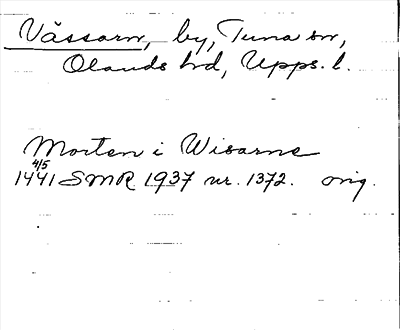 Vässarn, by, Tuna sn,
Olands hd, Upps. l.
Morten i Wisarne
4/5
1441 SMR 1937 nr. 1372. orig.